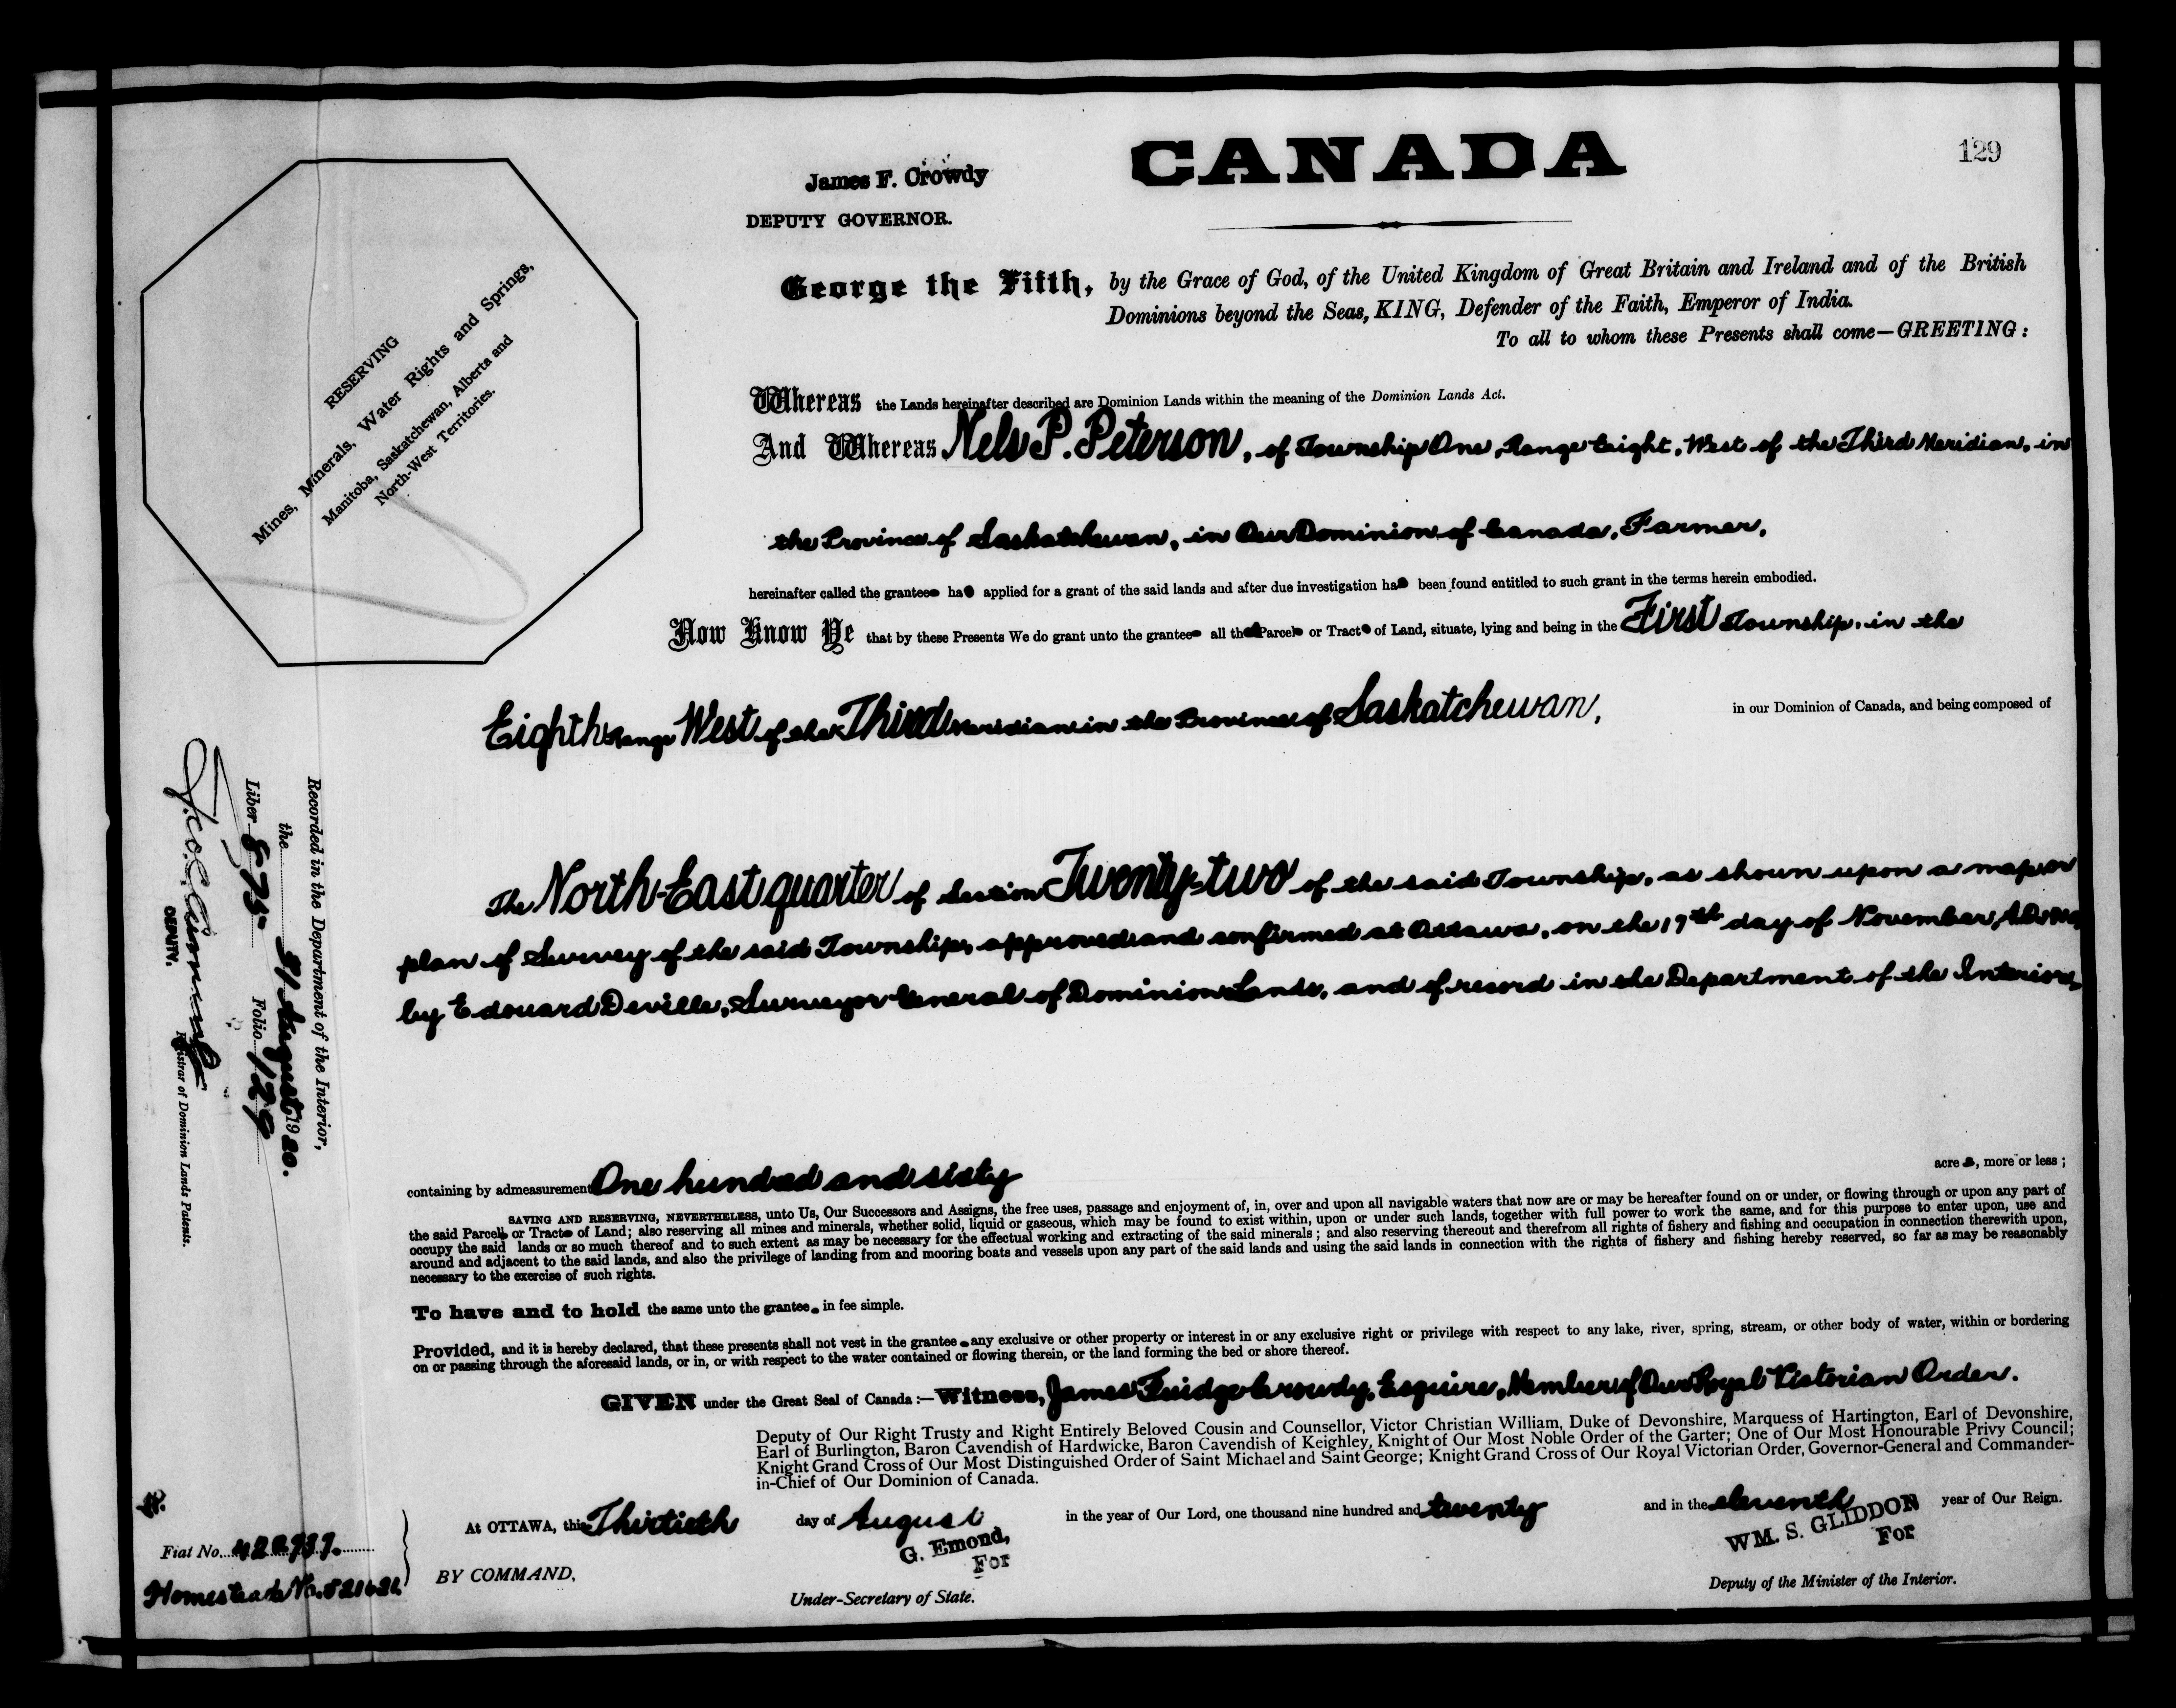 129
CANADA
James F. Crowdy
DEPUTY GOVERNOR.
George the Fifth, by the Grace of God, of the United Kingdom of Great Britain and Ireland and of the British
Dominions beyond the Seas, KING, Defender of the Faith, Emperor of India.
To all to whom these Presents shall come—GREETING:
RESERVING
Mines, Minerals, Water Rights and Springs,
Manitoba, Saskatchewan, Alberta and
North-West Territories.
Whereas the Lands hereinafter described are Dominion Lands within the meaning of the Dominion Lands Act.
And Whereas Nels P. Peterson, of Township One, Range Eight, West of the Third Meridian, in
the Province of Saskatchewan, in Our Dominion of Canada, Farmer,
hereinafter called the grantee has applied for a grant of the said lands and after due investigation has been found entitled to such grant in the terms herein embodied.
Now Know Ye that by these Presents We do grant unto the grantee all that Parcel or Tract of Land, situate, lying and being in the First Township, in the
Eighth Range West of the Third Meridian in the Province of Saskatchewan, in our Dominion of Canada, and being composed of
The North-East quarter of Section Twenty-two of the said Township, as shown upon a map or
plan of Survey of the said Township, approved and confirmed at Ottawa, on the 19th day of November, A.D.
by Edouard Deville, Surveyor General of Dominion Lands, and of record in the Department of the Interior,
containing by admeasurement One hundred and sixty acres, more or less;
SAVING AND RESERVING, NEVERTHELESS, unto Us, Our Successors and Assigns, the free uses, passage and enjoyment of, in, over and upon all navigable waters that now are or may be hereafter found on or under, or flowing through or upon any part of
the said Parcel or Tract of Land; also reserving all mines and minerals, whether solid, liquid or gaseous, which may be found to exist within, upon or under such lands, together with full power to work the same, and for this purpose to enter upon, use and
occupy the said lands or so much thereof and to such extent as may be necessary for the effectual working and extracting of the said minerals; and also reserving thereout and therefrom all rights of fishery and fishing and occupation in connection therewith upon,
around and adjacent to the said lands, and also the privilege of landing from and mooring boats and vessels upon any part of the said lands and using the said lands in connection with the rights of fishery and fishing hereby reserved, so far as may be reasonably
necessary to the exercise of such rights.
To have and to hold the same unto the grantee in fee simple.
Provided, and it is hereby declared, that these presents shall not vest in the grantee any exclusive or other property or interest in or any exclusive right or privilege with respect to any lake, river, spring, stream, or other body of water, within or bordering
on or passing through the aforesaid lands, or in, or with respect to the water contained or flowing therein, or the land forming the bed or shore thereof.
GIVEN under the Great Seal of Canada:—Witness, James Fuidge Crowdy, Esquire, Member of Our Royal Victorian Order.
Deputy of Our Right Trusty and Right Entirely Beloved Cousin and Counsellor, Victor Christian William, Duke of Devonshire, Marquess of Hartington, Earl of Devonshire,
Earl of Burlington, Baron Cavendish of Hardwicke, Baron Cavendish of Keighley, Knight of Our Most Noble Order of the Garter; One of Our Most Honourable Privy Council;
Knight Grand Cross of Our Most Distinguished Order of Saint Michael and Saint George; Knight Grand Cross of Our Royal Victorian Order, Governor-General and Commander-
in-Chief of Our Dominion of Canada.
At OTTAWA, this Thirtieth day of August in the year of Our Lord, one thousand nine hundred and twenty and in the eleventh year of Our Reign.
G. Emond,
For
WM. S. GLIDDON
For
BY COMMAND,
Under-Secretary of State.
Deputy of the Minister of the Interior.
Recorded in the Department of the Interior,
the 31 August 1920.
Liber 875 Folio 129
DEPUTY. Registrar of Dominion Lands Patents.
Fiat No.
Homestead No.